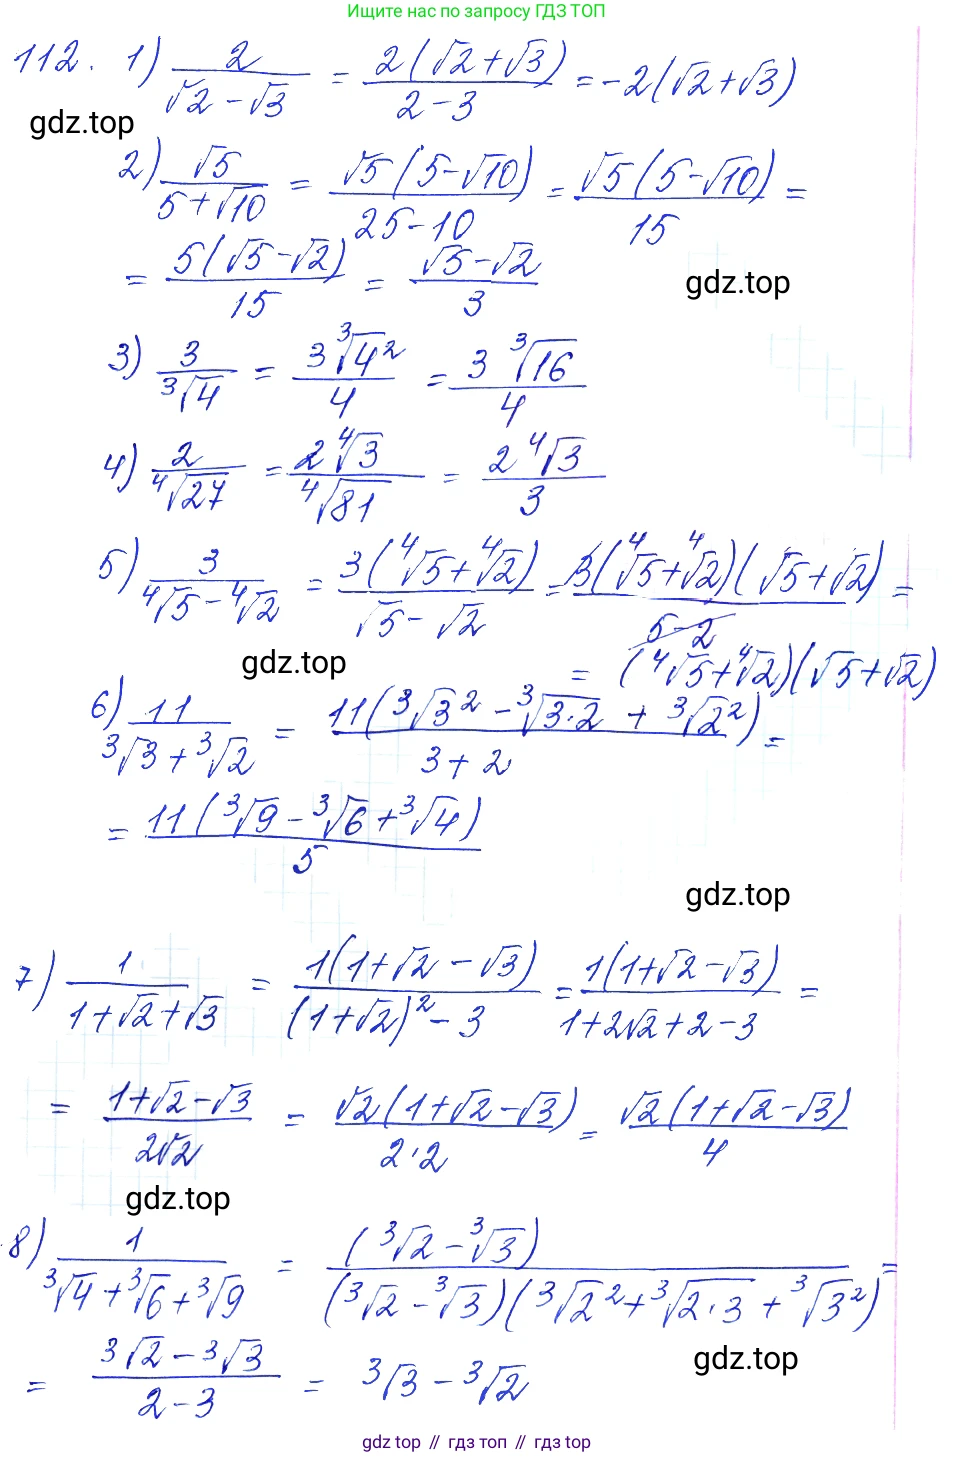 Ищите нас по запросу ГДЗ ТОП
112. 1) 2/(√2-√3) = 2(√2+√3)/(2-3) = -2(√2+√3)
gdz.top
2) √5/(5+√10) = √5(5-√10)/(25-10) = √5(5-√10)/15 =
= 5(√5-√2)/15 = (√5-√2)/3
gdz.top
3) 3/∛4 = 3∛4²/4 = 3∛16/4
4) 2/∜27 = 2∜3/∜81 = 2∜3/3
5) 3/(∜5-∜2) = 3(∜5+∜2)/(√5-√2) = 3(∜5+∜2)(√5+√2)/(5-2) =
gdz.top
= (∜5+∜2)(√5+√2)
6) 11/(∛3+∛2) = 11(∛3²-∛3·2+∛2²)/(3+2) =
= 11(∛9-∛6+∛4)/5
gdz.top
7) 1/(1+√2+√3) = 1(1+√2-√3)/((1+√2)²-3) = 1(1+√2-√3)/(1+2√2+2-3) =
= (1+√2-√3)/2√2 = √2(1+√2-√3)/2·2 = √2(1+√2-√3)/4
gdz.top
8) 1/(∛4+∛6+∛9) = (∛2-∛3)/(∛2-∛3)(∛2²+∛2·3+∛3²) =
= (∛2-∛3)/(2-3) = ∛3-∛2
gdz.top
gdz top // гдз топ // gdz top